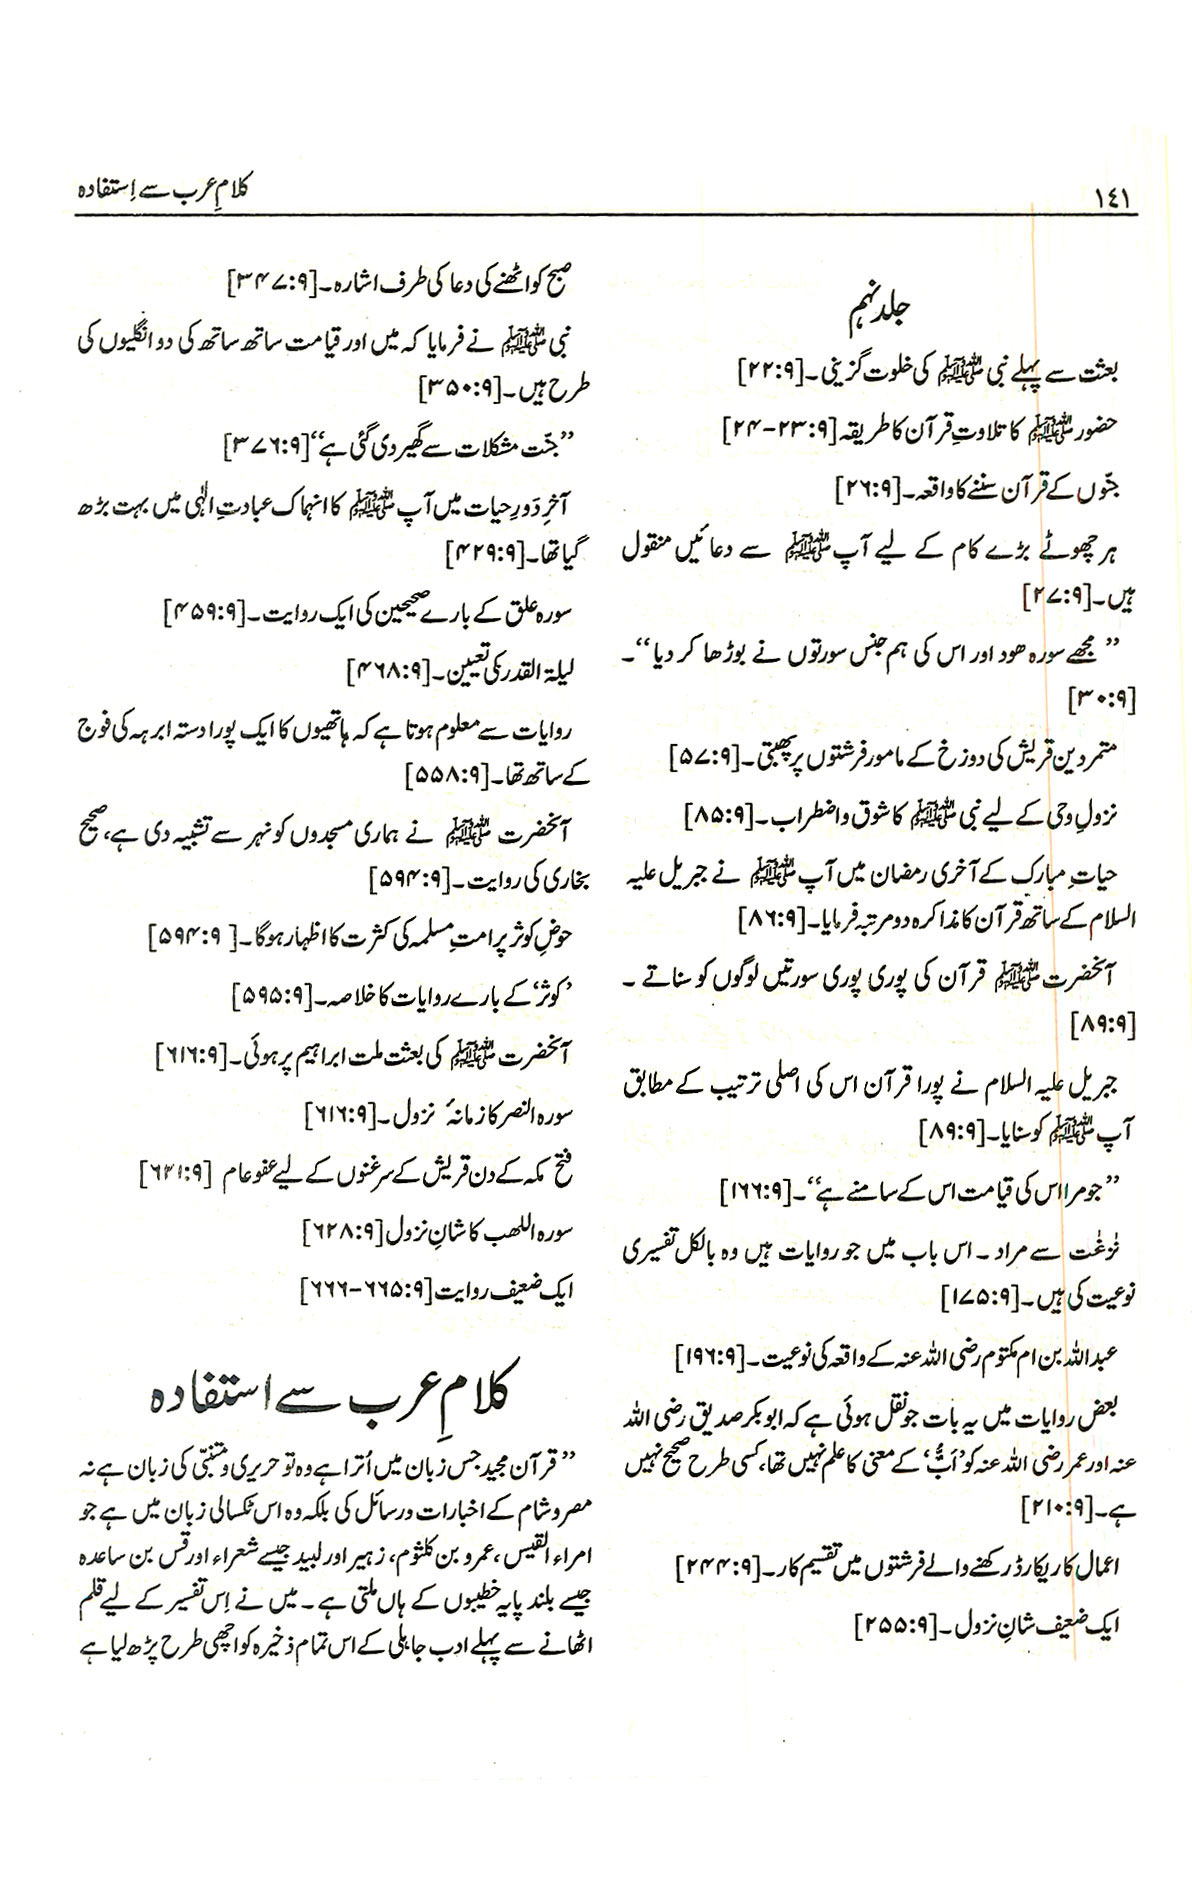 ۱۴۱
کلامِ عرب سے اِستفادہ
جلد نہم
بعثت سے پہلے نبی ﷺ کی خلوت گزینی۔[۲۲:۹]
حضور ﷺ کا تلاوتِ قرآن کا طریقہ [۲۳:۹-۲۴]
جنّوں کے قرآن سننے کا واقعہ۔[۲۶:۹]
ہر چھوٹے بڑے کام کے لیے آپ ﷺ سے دعائیں منقول
ہیں۔[۲۷:۹]
’’مجھے سورہ ھود اور اس کی ہم جنس سورتوں نے بوڑھا کر دیا‘‘۔
[۳۰:۹]
متمردین قریش کی دوزخ کے مامور فرشتوں پر پھبتی۔[۵۷:۹]
نزولِ وحی کے لیے نبی ﷺ کا شوق و اضطراب۔[۸۵:۹]
حیاتِ مبارک کے آخری رمضان میں آپ ﷺ نے جبریل علیہ
السلام کے ساتھ قرآن کا مذاکرہ دو مرتبہ فرمایا۔[۸۶:۹]
آنحضرت ﷺ قرآن کی پوری پوری سورتیں لوگوں کو سناتے۔
[۸۹:۹]
جبریل علیہ السلام نے پورا قرآن اس کی اصلی ترتیب کے مطابق
آپ ﷺ کو سنایا۔[۸۹:۹]
’’جو مرا اس کی قیامت اس کے سامنے ہے‘‘۔[۱۶۶:۹]
نٰزعٰت سے مراد۔ اس باب میں جو روایات ہیں وہ بالکل تفسیری
نوعیت کی ہیں۔[۱۷۵:۹]
عبداللہ بن ام مکتوم رضی اللہ عنہ کے واقعہ کی نوعیت۔[۱۹۶:۹]
بعض روایات میں یہ بات جو نقل ہوئی ہے کہ ابوبکر صدیق رضی اللہ
عنہ اور عمر رضی اللہ عنہ کو ’اَبٌّ‘ کے معنی کا علم نہیں تھا، کسی طرح صحیح نہیں
ہے۔[۲۱۰:۹]
اعمال کا ریکارڈ رکھنے والے فرشتوں میں تقسیم کار۔[۲۴۴:۹]
ایک ضعیف شانِ نزول۔[۲۵۵:۹]
صبح کو اٹھنے کی دعا کی طرف اشارہ۔[۳۴۷:۹]
نبی ﷺ نے فرمایا کہ میں اور قیامت ساتھ ساتھ کی دو انگلیوں کی
طرح ہیں۔[۳۵۰:۹]
’’جنّت مشکلات سے گھیر دی گئی ہے‘‘[۳۷۶:۹]
آخرِ دَورِ حیات میں آپ ﷺ کا انہماک عبادتِ الٰہی میں بہت بڑھ
گیا تھا۔[۴۲۹:۹]
سورہ علق کے بارے صحیحین کی ایک روایت۔[۴۵۹:۹]
لیلۃ القدر کی تعیین۔[۴۶۸:۹]
روایات سے معلوم ہوتا ہے کہ ہاتھیوں کا ایک پورا دستہ ابرہہ کی فوج
کے ساتھ تھا۔[۵۵۸:۹]
آنحضرت ﷺ نے ہماری مسجدوں کو نہر سے تشبیہ دی ہے، صحیح
بخاری کی روایت۔[۵۹۴:۹]
حوضِ کوثر پر امتِ مسلمہ کی کثرت کا اظہار ہوگا۔[۵۹۴:۹]
’کوثر‘ کے بارے روایات کا خلاصہ۔[۵۹۵:۹]
آنحضرت ﷺ کی بعثت ملت ابراہیم پر ہوئی۔[۶۱۶:۹]
سورہ النصر کا زمانۂ نزول۔[۶۱۶:۹]
فتح مکہ کے دن قریش کے سرغنوں کے لیے عفو عام [۶۲۱:۹]
سورہ اللھب کا شانِ نزول [۶۲۸:۹]
ایک ضعیف روایت [۶۶۵:۹-۶۶۶]
کلامِ عرب سے استفادہ
’’قرآن مجید جس زبان میں اُترا ہے وہ تو حریری و متنبّی کی زبان ہے نہ
مصر و شام کے اخبارات و رسائل کی بلکہ وہ اس ٹکسالی زبان میں ہے جو
امراء القیس، عمرو بن کلثوم، زہیر اور لبید جیسے شعراء اور قس بن ساعدہ
جیسے بلند پایہ خطیبوں کے ہاں ملتی ہے۔ میں نے اِس تفسیر کے لیے قلم
اٹھانے سے پہلے ادب جاہلی کے اس تمام ذخیرہ کو اچھی طرح پڑھ لیا ہے